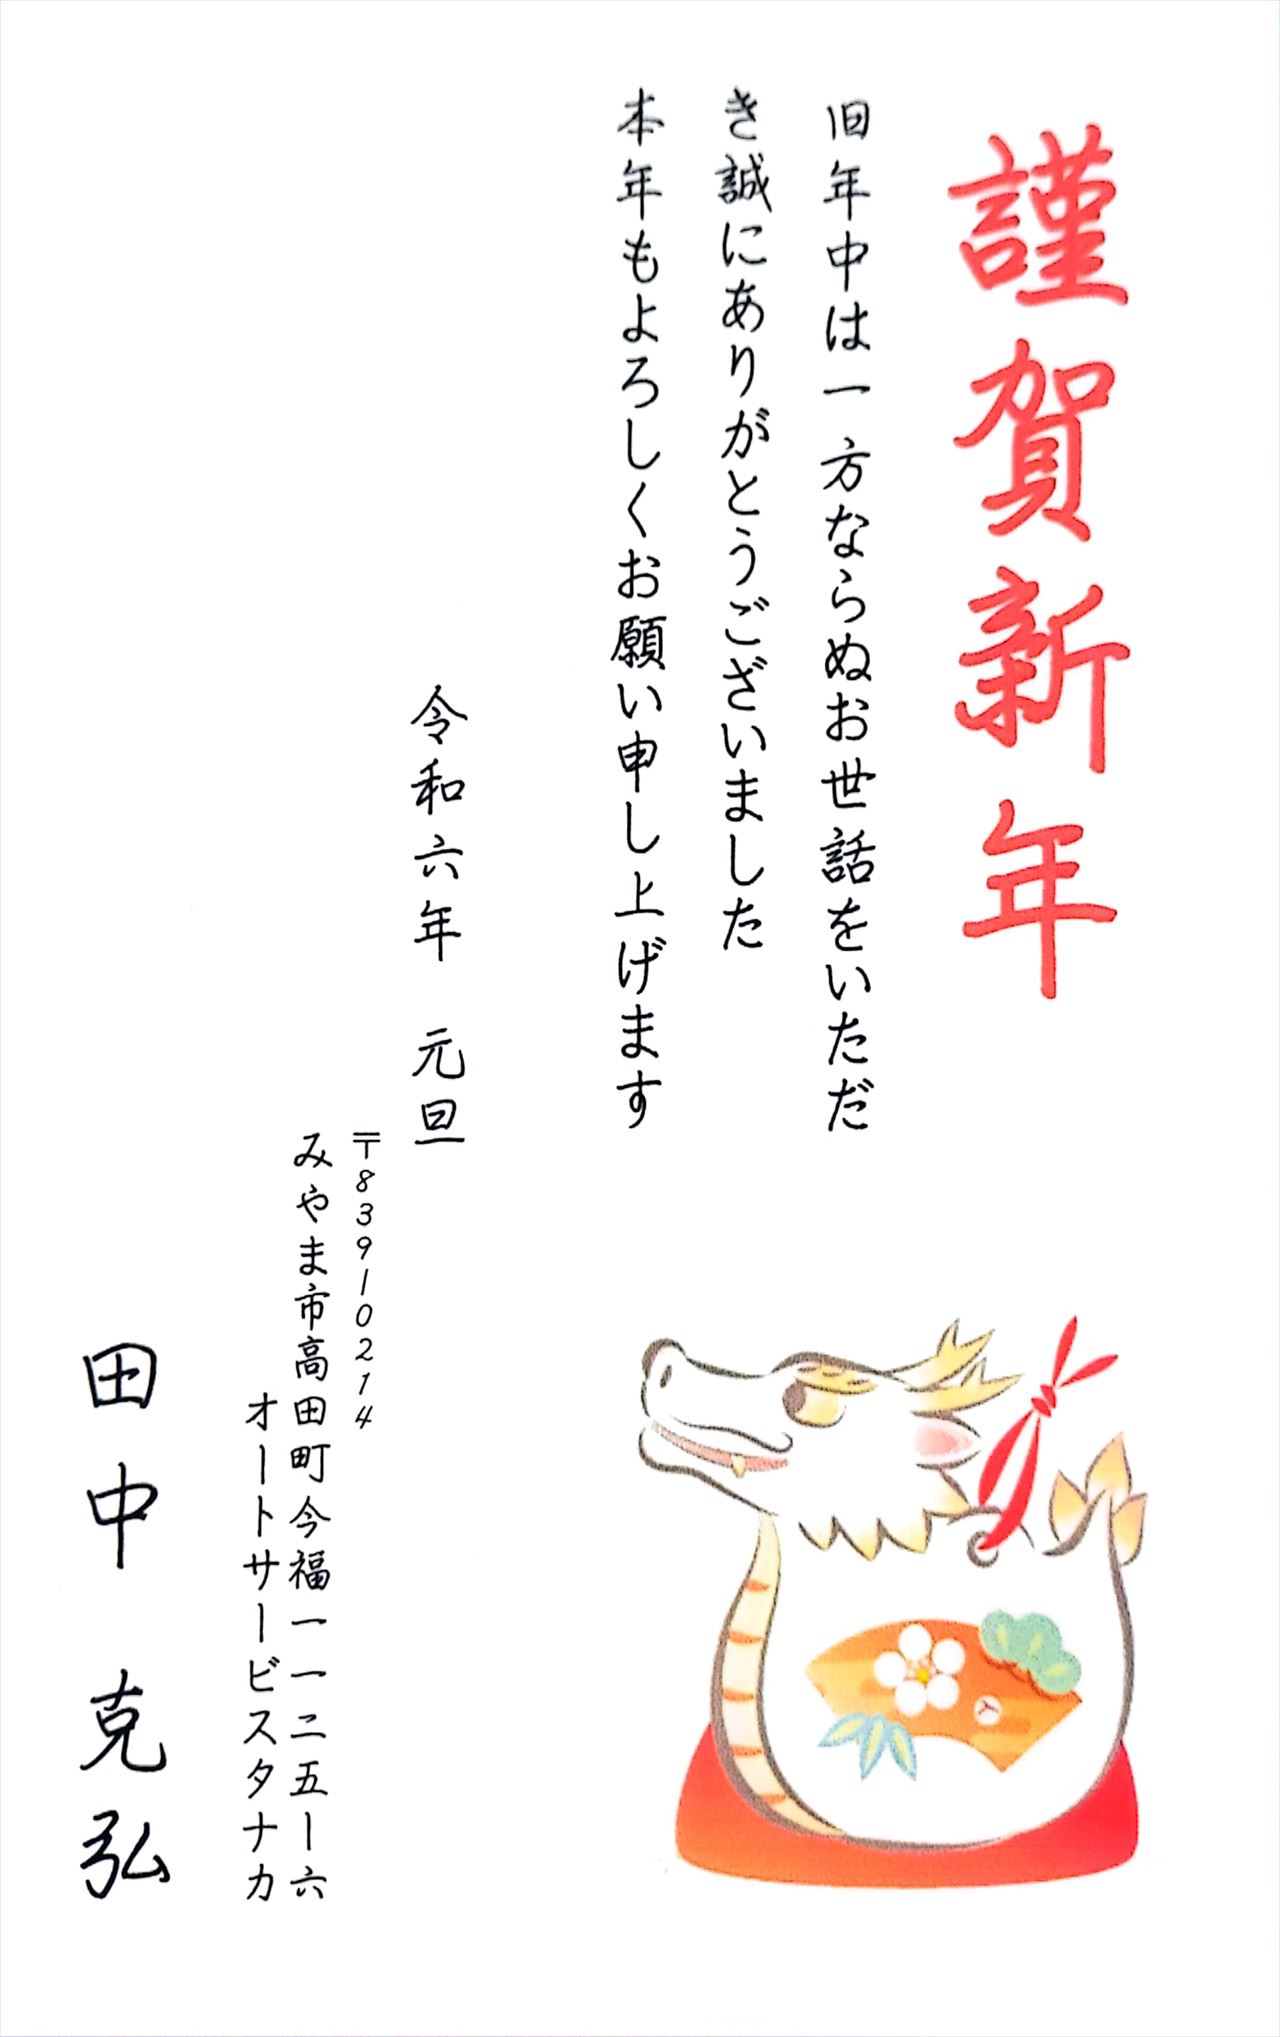 謹賀新年
旧年中は一方ならぬお世話をいただ
き誠にありがとうございました
本年もよろしくお願い申し上げます
令和六年　元旦
〒83910214
みやま市高田町今福一一二五ー六
オートサービスタナカ
田中　克弘